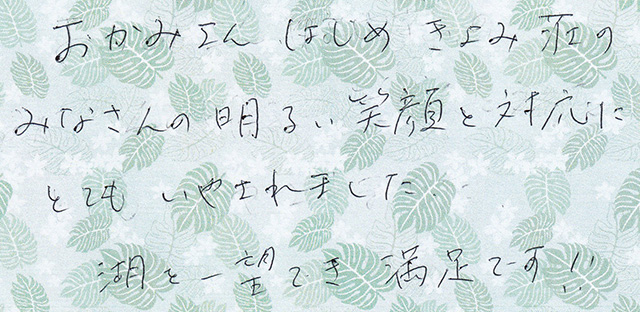 おかみさん はじめ きよみ荘の
みなさんの明るい笑顔と対応に
とても いやされました
湖を一望でき 満足です!!